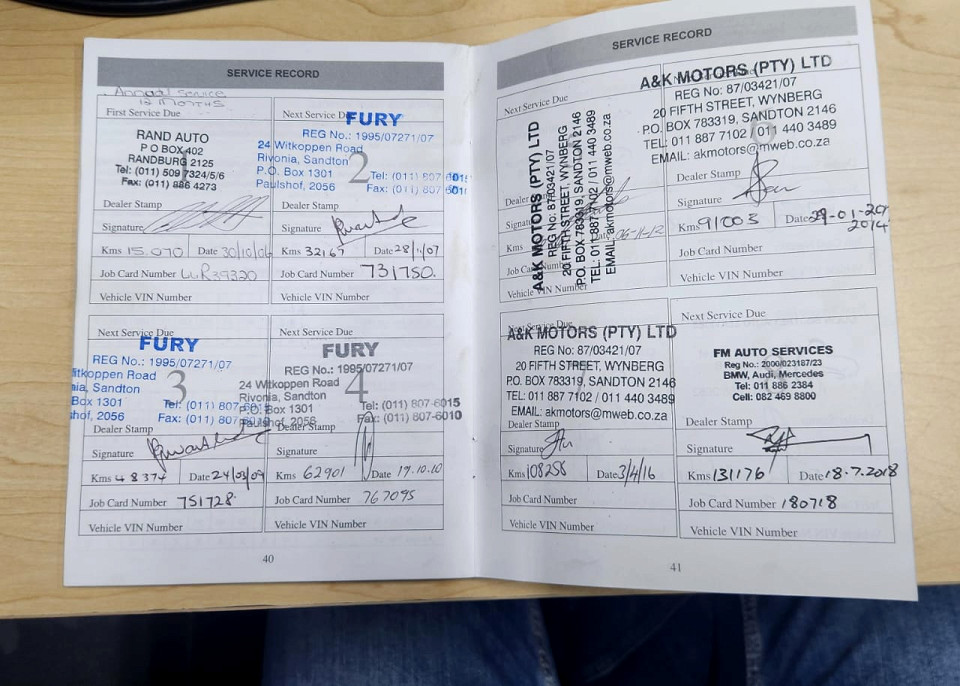 SERVICE RECORD
Annual service
12 MONTHS
First Service Due
RAND AUTO
P O BOX 402
RANDBURG 2125
Tel: (011) 509 7324/5/6
Fax: (011) 886 4273
Dealer Stamp
Signature
Kms 15.070 Date 30/10/06
Job Card Number WR39320
Vehicle VIN Number
Next Service Due
FURY
REG No.: 1995/07271/07
24 Witkoppen Road
Rivonia, Sandton
P.O. Box 1301
Paulshof, 2056
2
Tel: (011) 807-6015
Fax: (011) 807-6010
Dealer Stamp
Signature
Kms 32165 Date 28/11/07
Job Card Number 731750.
Vehicle VIN Number
Next Service Due
FURY
REG No.: 1995/07271/07
Witkoppen Road
nia, Sandton
Box 1301
shof, 2056
3
Tel: (011) 807
Fax: (011) 807
Dealer Stamp
Signature
Kms 48374 Date 24/03/09
Job Card Number 751728.
Vehicle VIN Number
Next Service Due
FURY
REG No.: 1995/07271/07
24 Witkoppen Road
Rivonia, Sandton
P.O. Box 1301
Paulshof, 2056
4
Tel: (011) 807-6015
Fax: (011) 807-6010
Dealer Stamp
Signature
Kms 62901 Date 19.10.10
Job Card Number 767095
Vehicle VIN Number
40
SERVICE RECORD
Next Service Due
A&K MOTORS (PTY) LTD
REG No: 87/03421/07
20 FIFTH STREET, WYNBERG
P.O. BOX 783319, SANDTON 2146
TEL: 011 887 7102 / 011 440 3489
EMAIL: akmotors@mweb.co.za
Dealer
Signature
Kms Date 06-11-12
Job Card
Vehicle VIN Number
A&K MOTORS (PTY) LTD
REG No: 87/03421/07
20 FIFTH STREET, WYNBERG
P.O. BOX 783319, SANDTON 2146
TEL: 011 887 7102 / 011 440 3489
EMAIL: akmotors@mweb.co.za
Dealer Stamp
Signature
Kms 91003 Date 29-01-2014
Job Card Number
Vehicle VIN Number
Next Service Due
A&K MOTORS (PTY) LTD
REG No: 87/03421/07
20 FIFTH STREET, WYNBERG
P.O. BOX 783319, SANDTON 2146
TEL: 011 887 7102 / 011 440 3489
EMAIL: akmotors@mweb.co.za
Dealer Stamp
Signature
Kms 108258 Date 3/4/16
Job Card Number
Vehicle VIN Number
Next Service Due
FM AUTO SERVICES
Reg No.: 2000/023187/23
BMW, Audi, Mercedes
Tel: 011 886 2384
Cell: 082 469 8800
Dealer Stamp
Signature
Kms 131176 Date 18.7.2018
Job Card Number 180718
Vehicle VIN Number
41